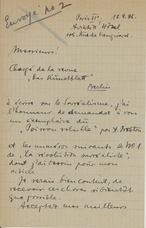 Envoyé no 2
Paris
Hôtel
Monsieur!
Chargé de la revue
"Das Kunstblatt"
Berlin
à écrire sur le Surréalisme, j'ai
l'honneur de demander à vous
exemplaire du
"Poisson soluble" par
et les numéros suivants
de "la révolution surréaliste",
dont j'ai besoin pour mon
article.
Je serais bien content, de
recevoir ces choses
que possible.
Acceptez mes meilleurs